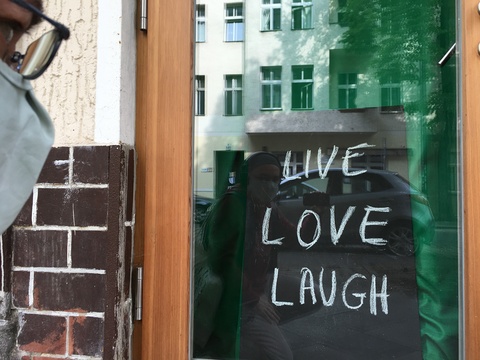 LIVE
LOVE
LAUGH